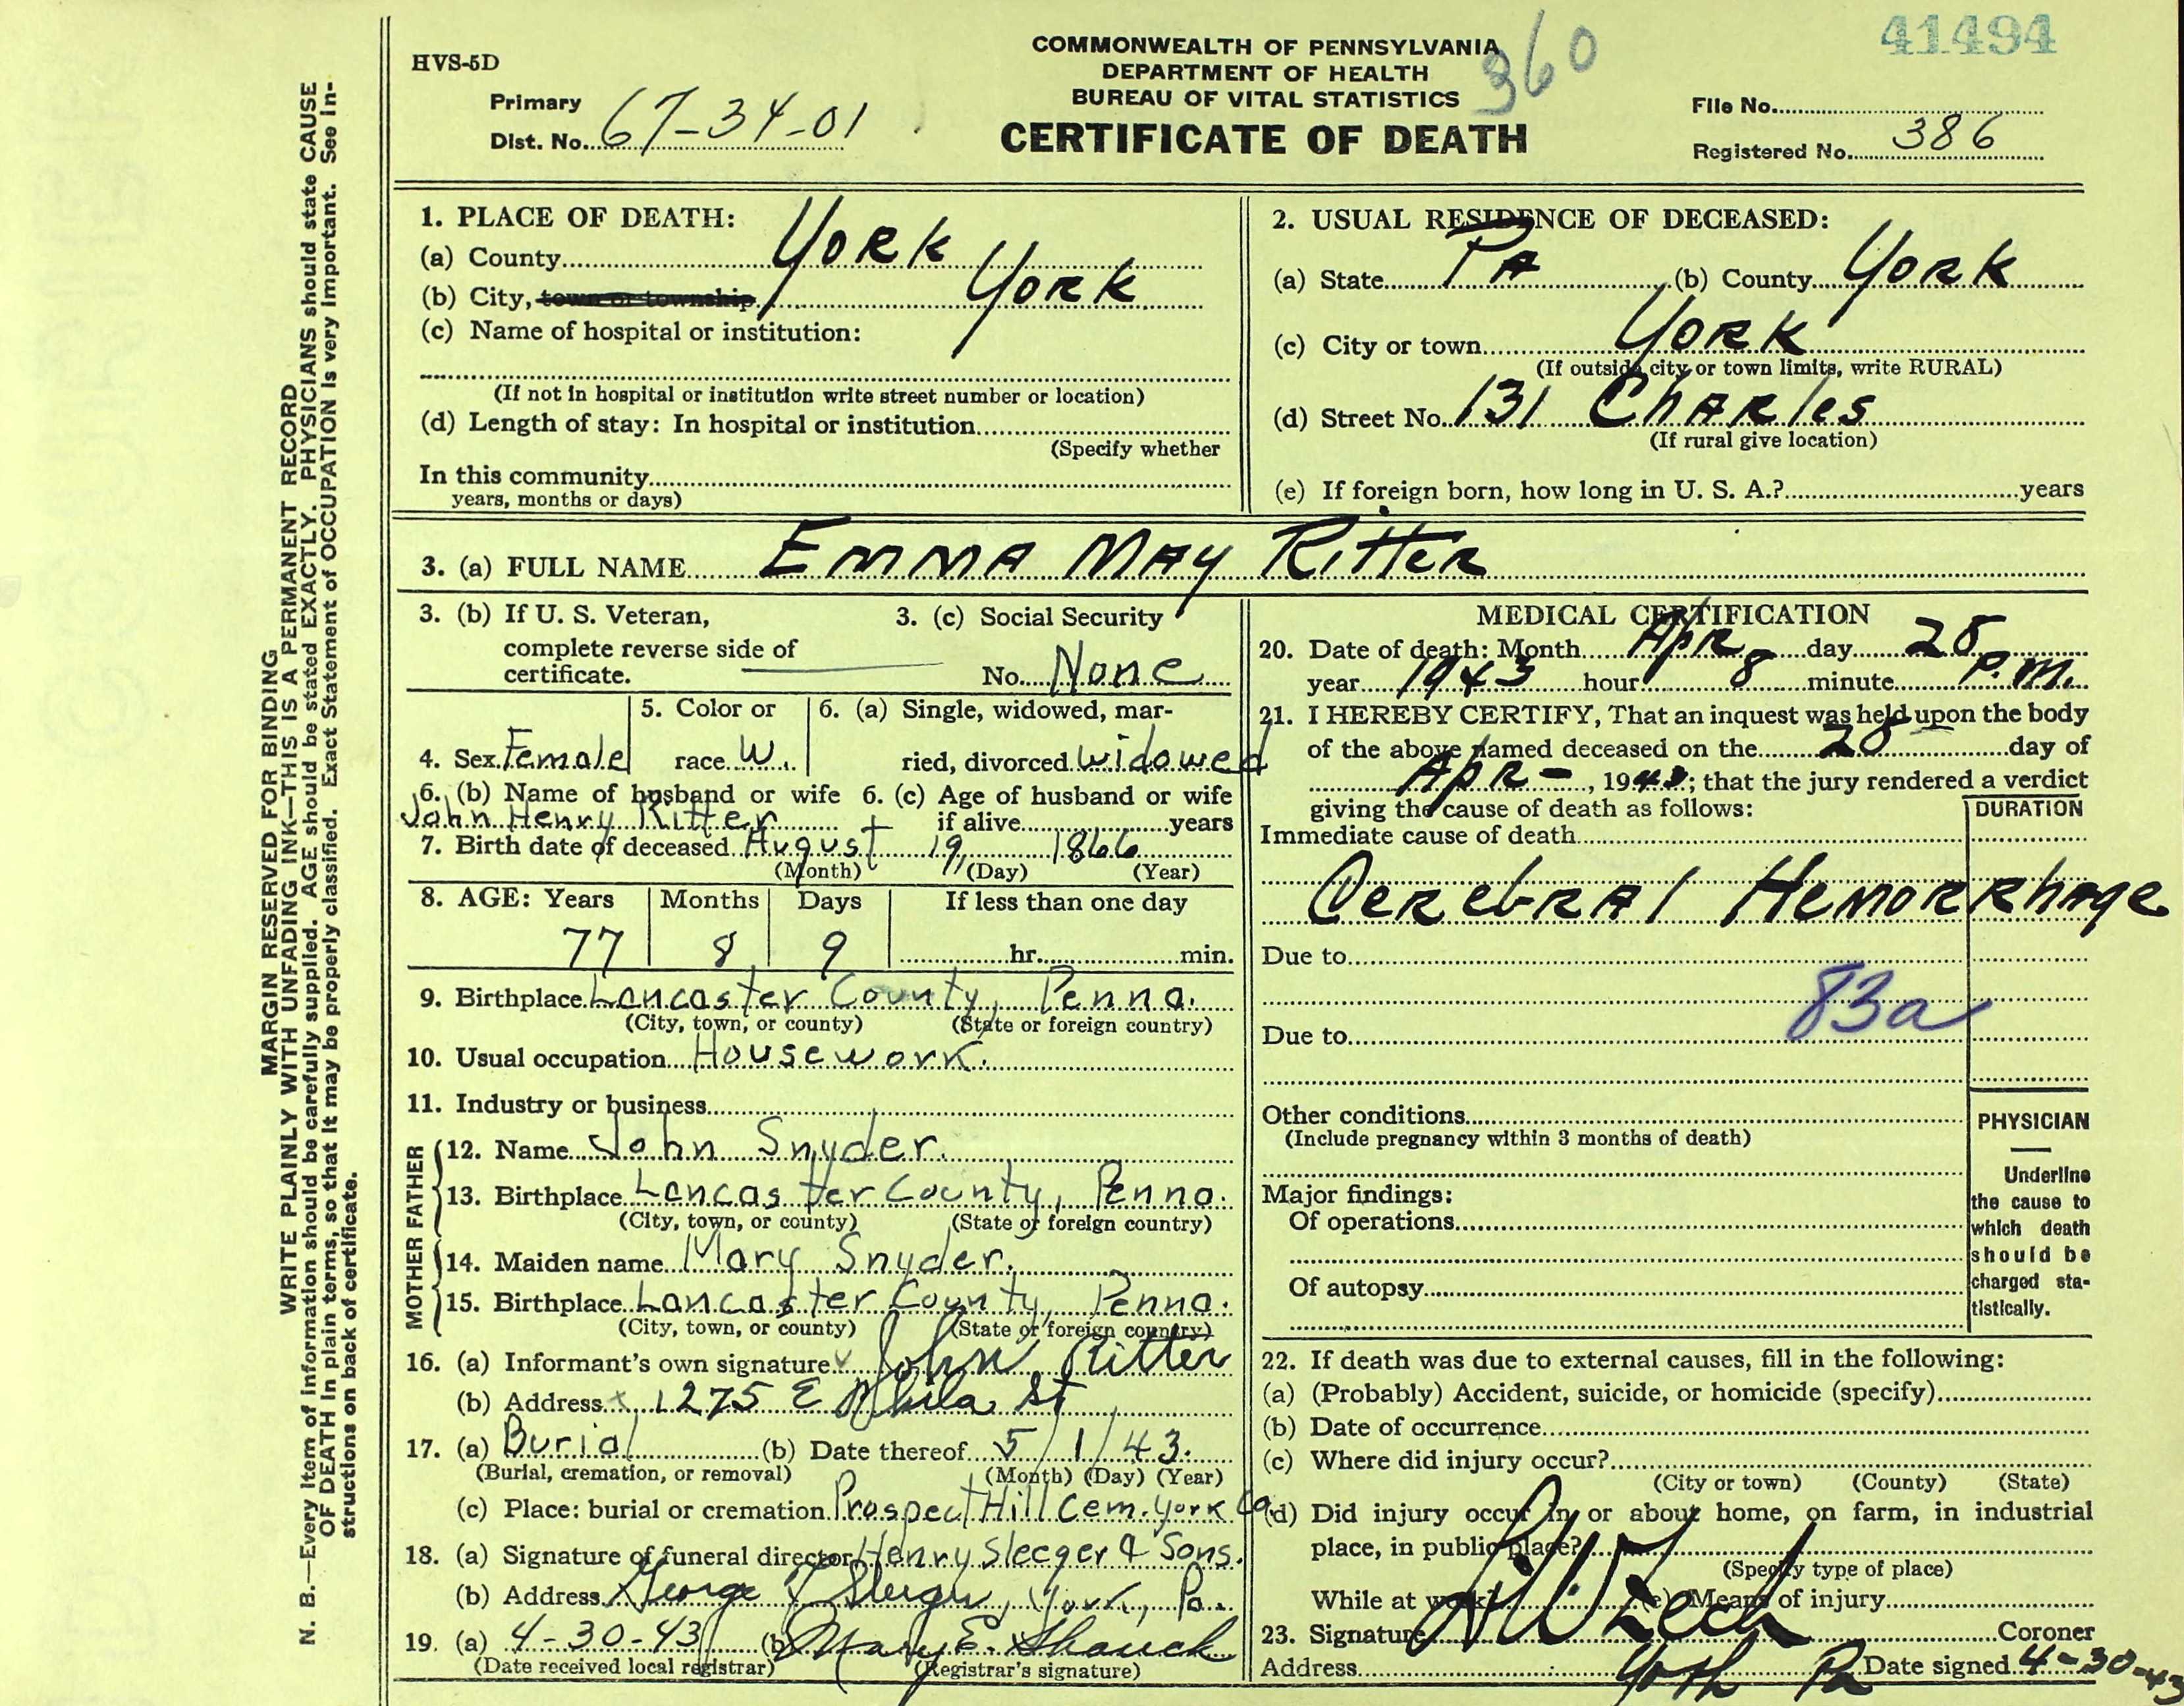 41494
360
HVS-5D
COMMONWEALTH OF PENNSYLVANIA
DEPARTMENT OF HEALTH
BUREAU OF VITAL STATISTICS
CERTIFICATE OF DEATH
Primary
Dist. No. 67-34-01
File No.
Registered No. 386
MARGIN RESERVED FOR BINDING
WRITE PLAINLY WITH UNFADING INK—THIS IS A PERMANENT RECORD
N. B.—Every item of information should be carefully supplied. AGE should be stated EXACTLY. PHYSICIANS should state CAUSE
OF DEATH in plain terms, so that it may be properly classified. Exact Statement of OCCUPATION is very important. See in-
structions on back of certificate.
1. PLACE OF DEATH:
(a) County York
(b) City, town or township York
(c) Name of hospital or institution:
(If not in hospital or institution write street number or location)
(d) Length of stay: In hospital or institution
(Specify whether
In this community
years, months or days)
2. USUAL RESIDENCE OF DECEASED:
(a) State PA (b) County York
(c) City or town York
(If outside city or town limits, write RURAL)
(d) Street No. 131 Charles
(If rural give location)
(e) If foreign born, how long in U. S. A.? years
3. (a) FULL NAME Emma May Ritter
3. (b) If U. S. Veteran,
complete reverse side of
certificate.
3. (c) Social Security
No. None
4. Sex Female
5. Color or
race W.
6. (a) Single, widowed, mar-
ried, divorced Widowed
6. (b) Name of husband or wife
John Henry Ritter
6. (c) Age of husband or wife
if alive years
7. Birth date of deceased August 19, 1866
(Month) (Day) (Year)
8. AGE: Years Months Days If less than one day
77 8 9 hr. min.
9. Birthplace Lancaster County, Penna.
(City, town, or county) (State or foreign country)
10. Usual occupation Housework.
11. Industry or business
FATHER
12. Name John Snyder.
13. Birthplace Lancaster County, Penna.
(City, town, or county) (State or foreign country)
MOTHER
14. Maiden name Mary Snyder.
15. Birthplace Lancaster County, Penna.
(City, town, or county) (State or foreign country)
16. (a) Informant's own signature John Ritter
(b) Address x 1275 E Phila St
17. (a) Burial (b) Date thereof 5/1/43.
(Burial, cremation, or removal) (Month) (Day) (Year)
(c) Place: burial or cremation Prospect Hill Cem. York Co.
18. (a) Signature of funeral director Henry Sleeger & Sons.
(b) Address George Sleeger, York, Pa.
19. (a) 4-30-43 (b) Mary E. Shauck
(Date received local registrar) (Registrar's signature)
MEDICAL CERTIFICATION
20. Date of death: Month Apr day 28
year 1943 hour 8 minute P.M.
21. I HEREBY CERTIFY, That an inquest was held upon the body
of the above named deceased on the 28 day of
Apr-, 1943; that the jury rendered a verdict
giving the cause of death as follows:
DURATION
Immediate cause of death
Cerebral Hemorrhage
Due to
83a
Due to
Other conditions
(Include pregnancy within 3 months of death)
Major findings:
Of operations
Of autopsy
PHYSICIAN
Underline
the cause to
which death
should be
charged sta-
tistically.
22. If death was due to external causes, fill in the following:
(a) (Probably) Accident, suicide, or homicide (specify)
(b) Date of occurrence
(c) Where did injury occur?
(City or town) (County) (State)
(d) Did injury occur in or about home, on farm, in industrial
place, in public place?
(Specify type of place)
While at work? (e) Means of injury
23. Signature Zech Coroner
Address York Pa Date signed 4-30-43